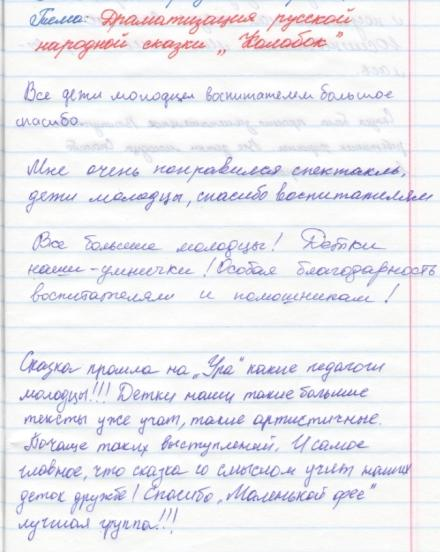 Тема: Драматизация русской
народной сказки „Колобок"
Все дети молодцы воспитателем большое
спасибо.
Мне очень понравился спектакль,
дети молодцы, спасибо воспитателям
Все большие молодцы! Детки
наши - умнички! Особая благодарность
воспитателям и помошникам!
Сказка прошла на „Ура" какие педагоги
молодцы!!! Детки наши такие большие
тексты уже учат, такие артистичные.
Почаще таких выступлений. И самое
главное, что сказка со смыслом учит наших
деток дружбе! Спасибо „Маленькой фее"
лучшая группа!!!